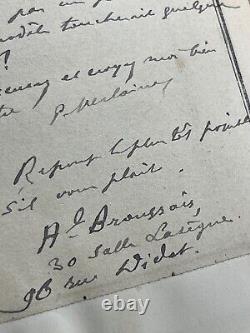 par un
modèle toucherait quelque
?
et croyez moi bien
P. Verlaine
Réponse le plus tôt possible
s'il vous plait.
Hal Broussais,
30 salle Lasègue.
96 rue Didot.